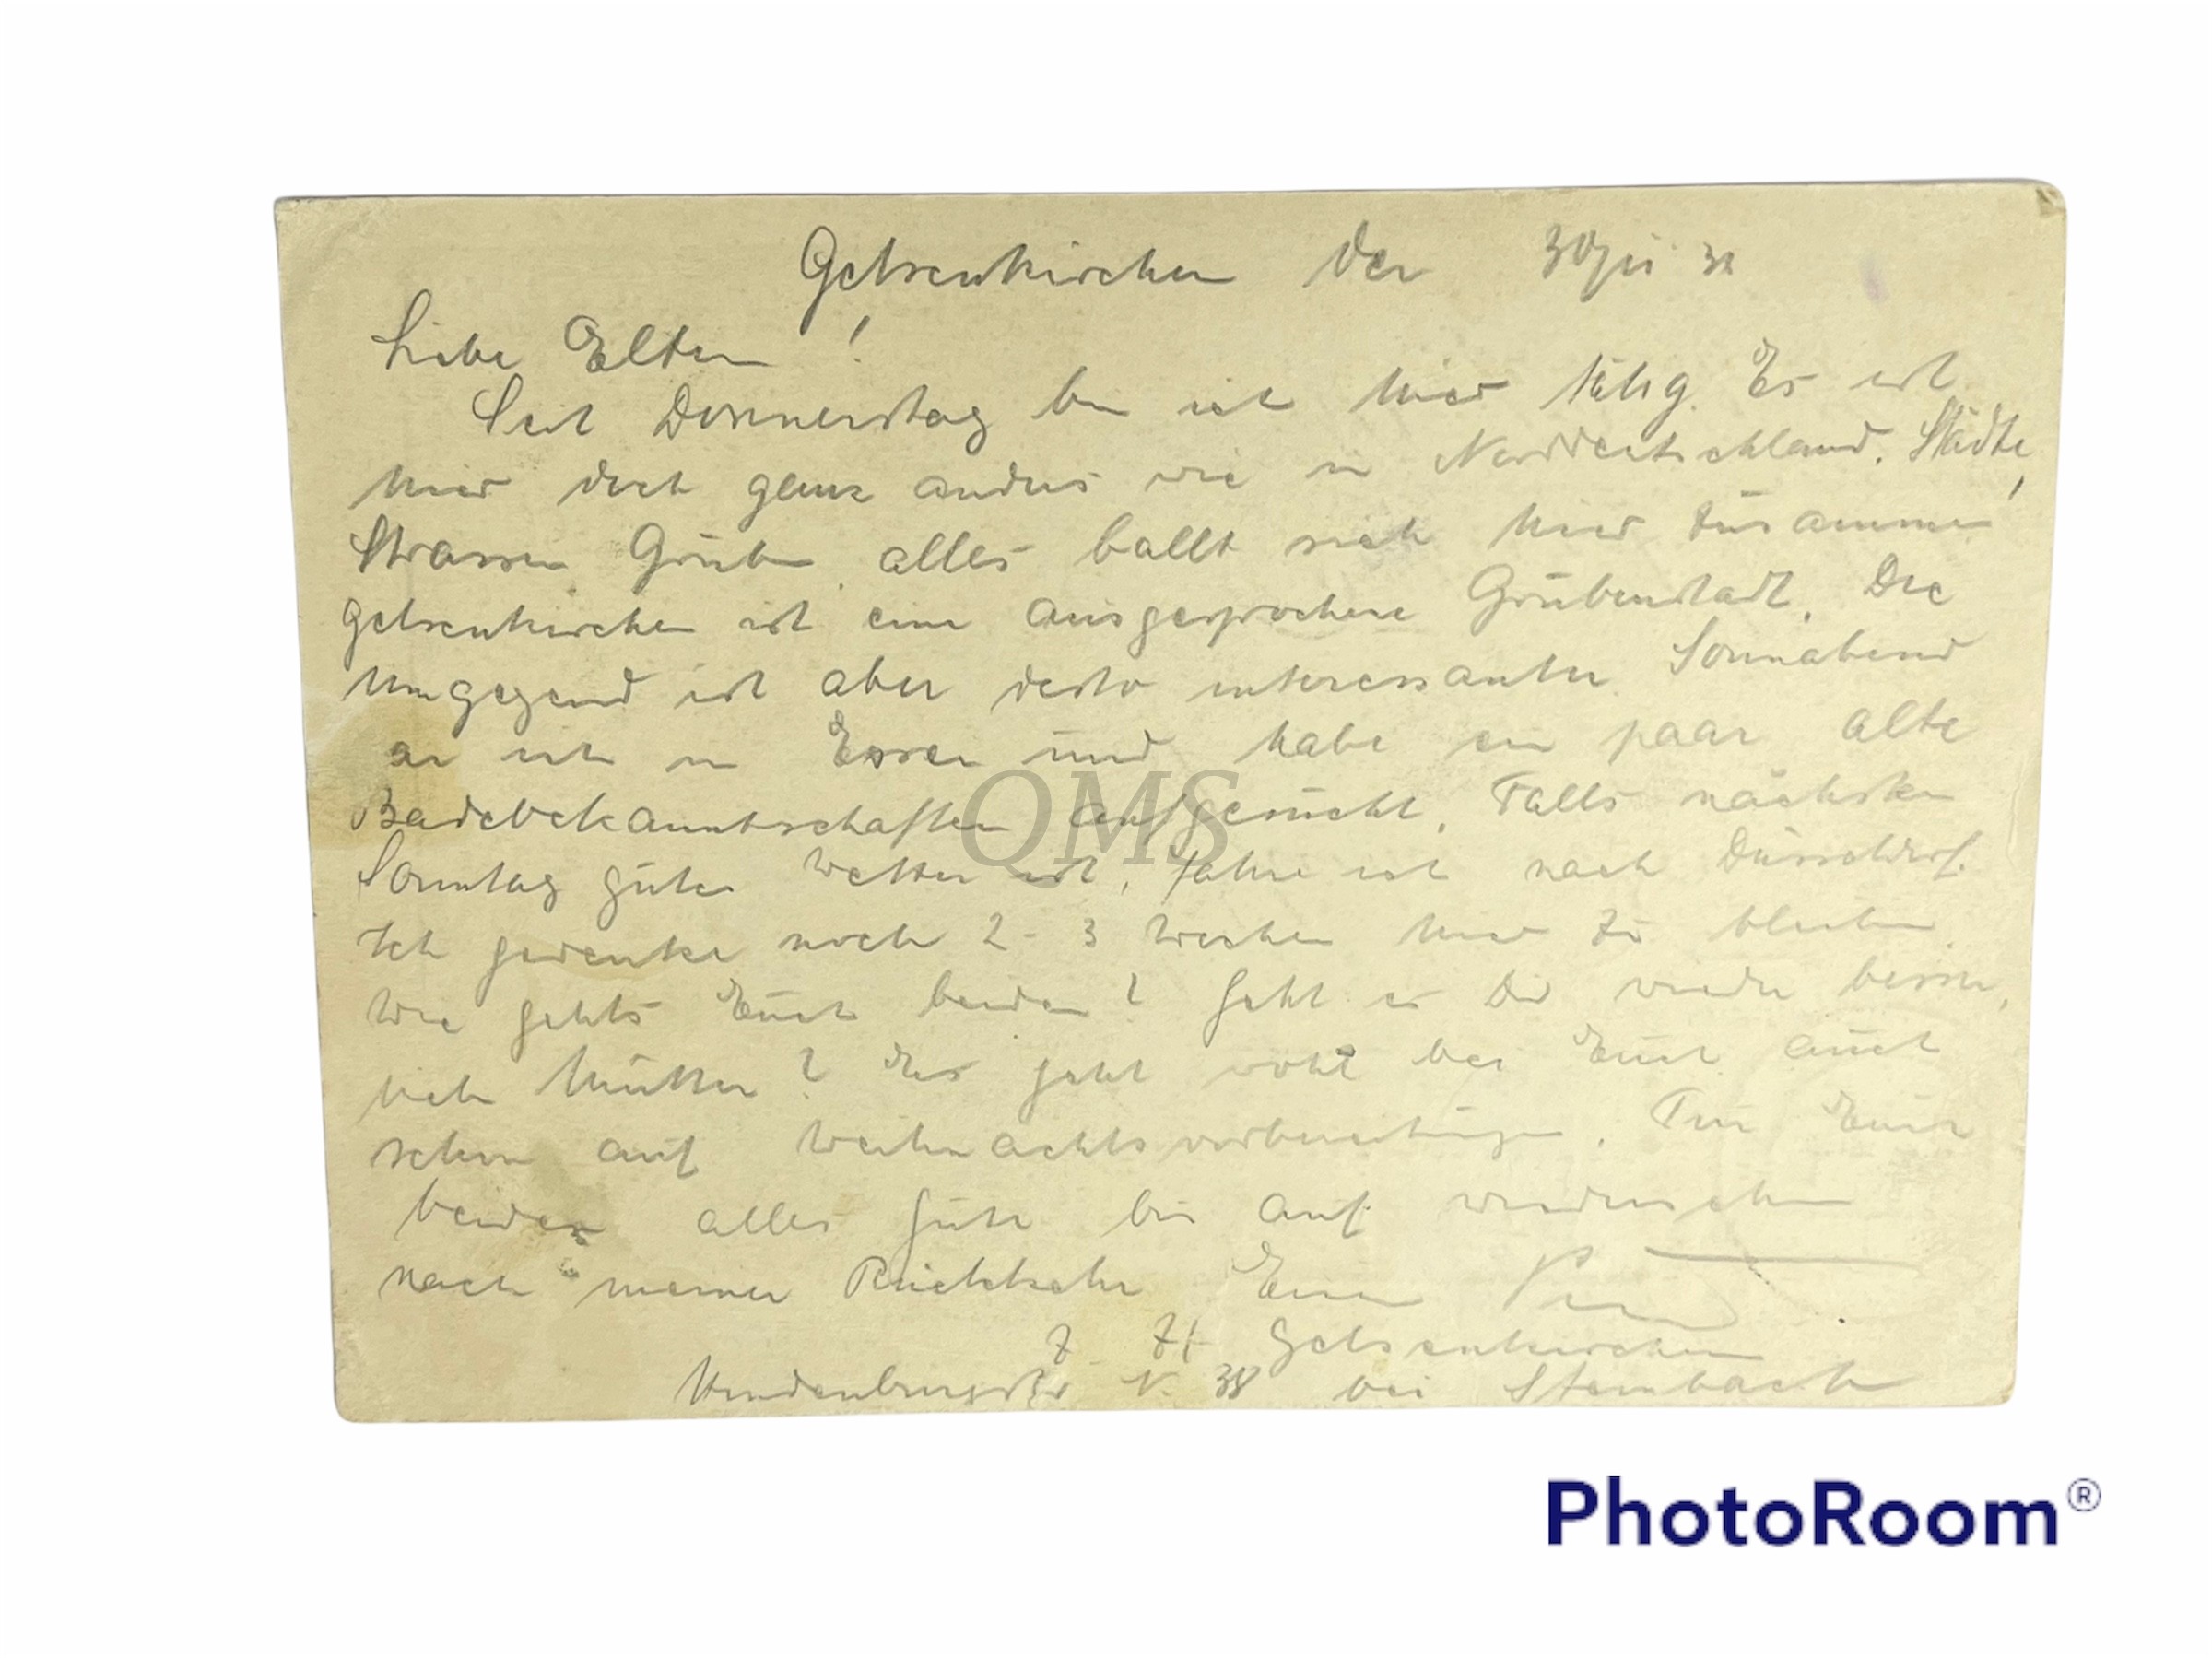 Gelsenkirchen den 30 31
Liebe Eltern!
Seit Donnerstag bin ich hier tätig. Es ist
hier doch ganz anders wie in Norddeutschland. Städte,
Strassen Gruben alles ballt sich hier zusammen
Gelsenkirchen ist eine ausgesprochene Grubenstadt. Die
Umgegend ist aber desto interessanter. Sonnabend
war ich in Essen und habe ein paar alte
Badebekanntschaften aufgesucht. Falls nächsten
Sonntag gutes Wetter ist, fahre ich nach Düsseldorf.
Ich gedenke noch 2-3 Wochen hier zu bleiben.
Wie gehts Euch beiden? Geht es Dir wieder besser,
liebe Mutter? Es geht wohl bei Euch auch
schon auf Weihnachtsvorbereitungen. Für Euch
beiden alles Gute bis auf wiedersehen
nach meiner Rückkehr Euer
z Zt Gelsenkirchen
Hindenburgstr N. 38 bei Steinbach
QMS
PhotoRoom®